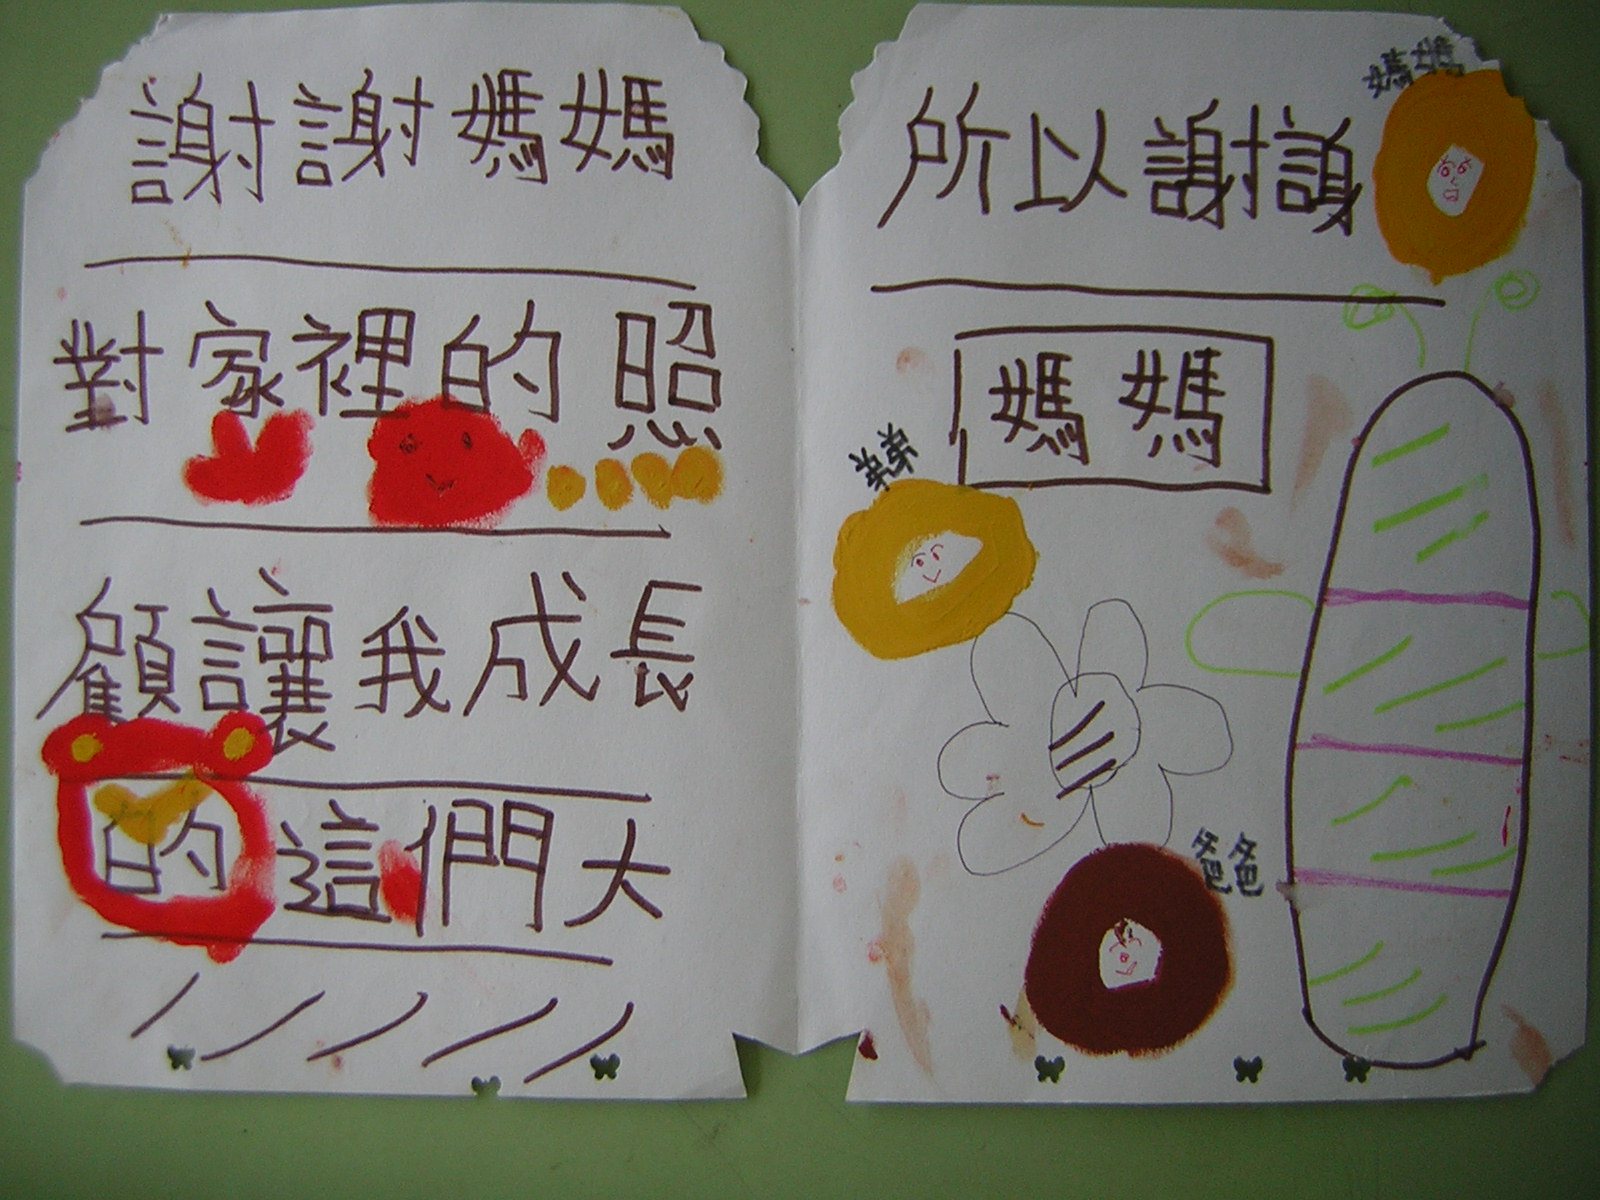 謝謝媽媽
對家裡的照
顧讓我成長
的這們大
媽媽
所以謝謝
媽媽
爸爸